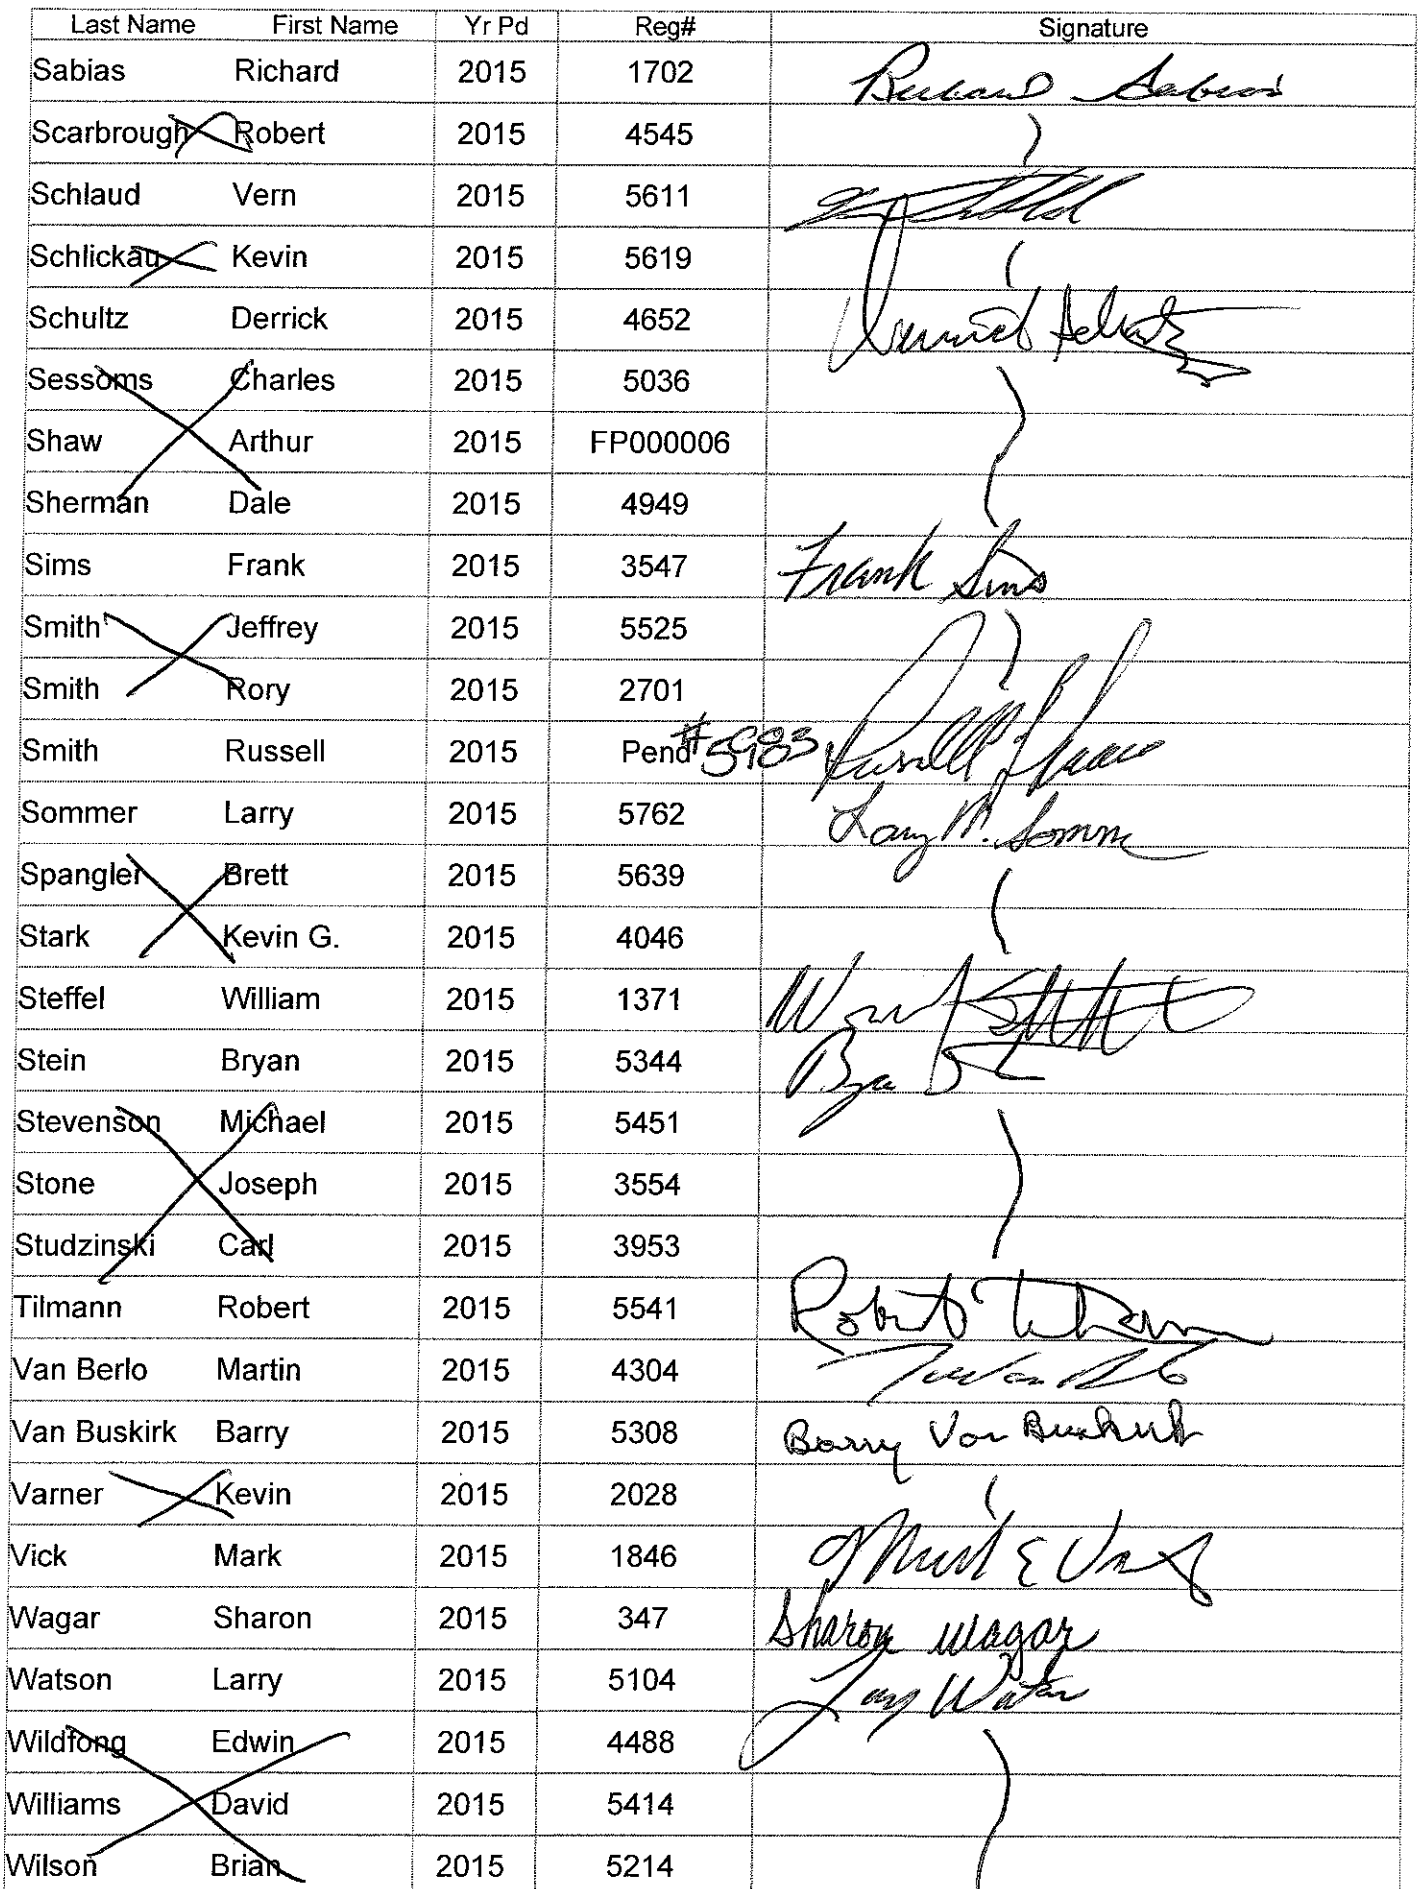 Last Name First Name Yr Pd Reg# Signature
Sabias Richard 2015 1702 Richard Sabias
Scarbrough Robert 2015 4545
Schlaud Vern 2015 5611
Schlickau Kevin 2015 5619
Schultz Derrick 2015 4652 Derrick Schultz
Sessoms Charles 2015 5036
Shaw Arthur 2015 FP000006
Sherman Dale 2015 4949
Sims Frank 2015 3547 Frank Sims
Smith Jeffrey 2015 5525
Smith Rory 2015 2701
Smith Russell 2015 Pend #5983 Russell
Sommer Larry 2015 5762 Larry M. Sommer
Spangler Brett 2015 5639
Stark Kevin G. 2015 4046
Steffel William 2015 1371
Stein Bryan 2015 5344
Stevenson Michael 2015 5451
Stone Joseph 2015 3554
Studzinski Carl 2015 3953
Tilmann Robert 2015 5541 Robert Tilmann
Van Berlo Martin 2015 4304
Van Buskirk Barry 2015 5308 Barry Van Buskirk
Varner Kevin 2015 2028
Vick Mark 2015 1846 Mark E Vick
Wagar Sharon 2015 347 Sharon Wagar
Watson Larry 2015 5104 Larry Watson
Wildfong Edwin 2015 4488
Williams David 2015 5414
Wilson Brian 2015 5214